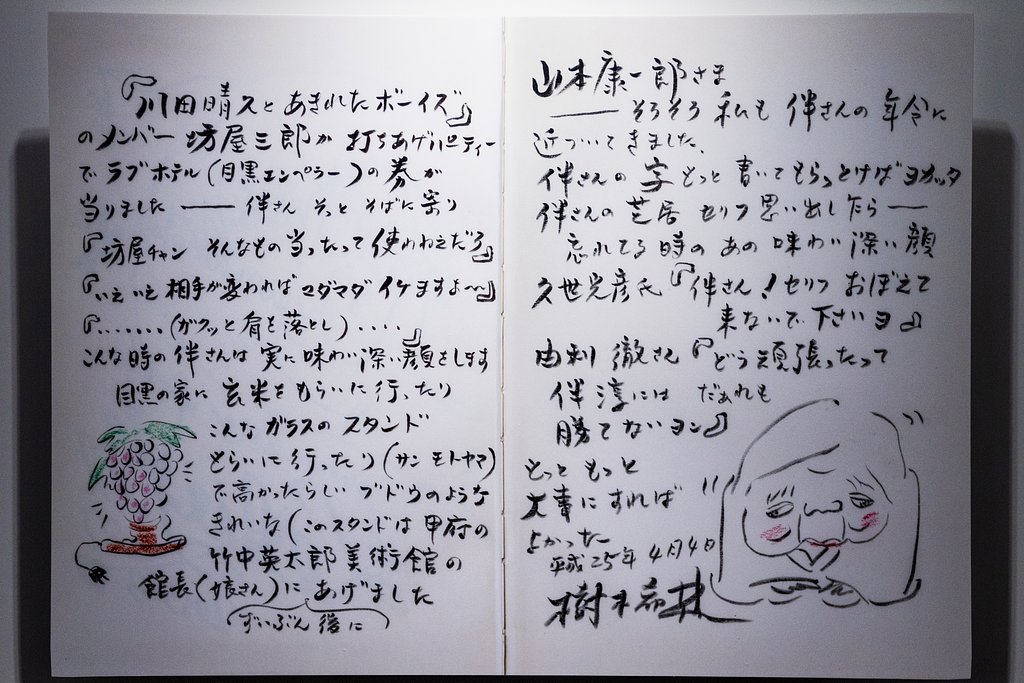 『川田晴久とあきれたボーイズ』
のメンバー 坊屋三郎が 打ちあげパーティー
で ラブホテル(目黒エンペラー)の券が
当りました ── 伴さん そっと そばに寄り
『坊屋チャン そんなもの当ったって使わねえだろ』
『いえいえ相手が変わればマダマダイケますよ〜』
『.......(ガクッと肩を落とし)....』
こんな時の伴さんは 実に味わい深い顔をします
目黒の家に 玄米をもらいに行ったり
こんな ガラスの スタンド
とらいに行ったり(サン モトヤマ)
で高かったらしい ブドウのような
きれいな(このスタンドは 甲府の
竹中英太郎美術館の
館長(娘さん)に あげました
(ずいぶん後に)
山本康一郎さま
── そろそろ 私も 伴さんの 年令に
近づいてきました、
伴さんの 字 もっと 書いてもらっとけば ヨカッタ
伴さんの 芝居 セリフ 思い出したら ──
忘れてる 時の あの 味わい深い 顔
久世光彦氏『伴さん!セリフ おぼえて
来ないで下さいヨ』
由利 徹さん『どう頑張ったって
伴 淳には だぁれも
勝てないヨン』
もっと もっと
大事にすれば
よかったー
平成25年4月4日
樹木希林